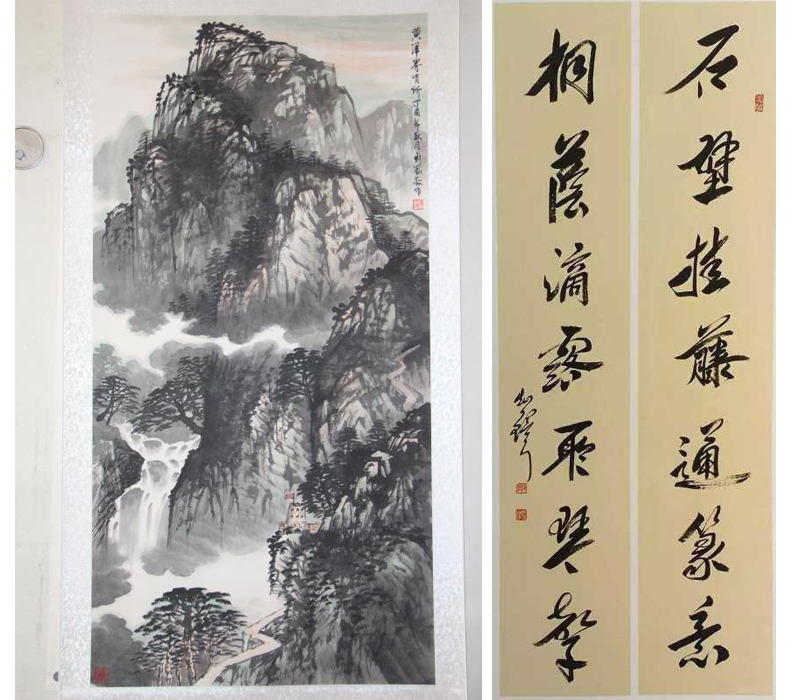 黄洋界哨所丁酉年秋月作
石壁挂藤通篆意
桐蔭滴露取琴聲